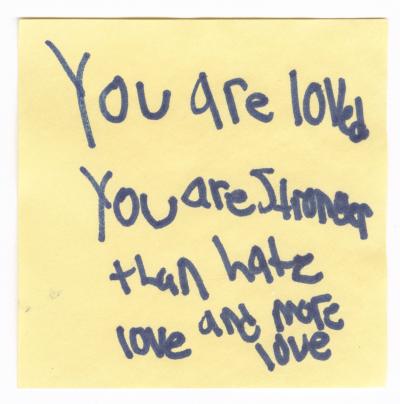 You are loved
You are stronger
than hate
love and more
love